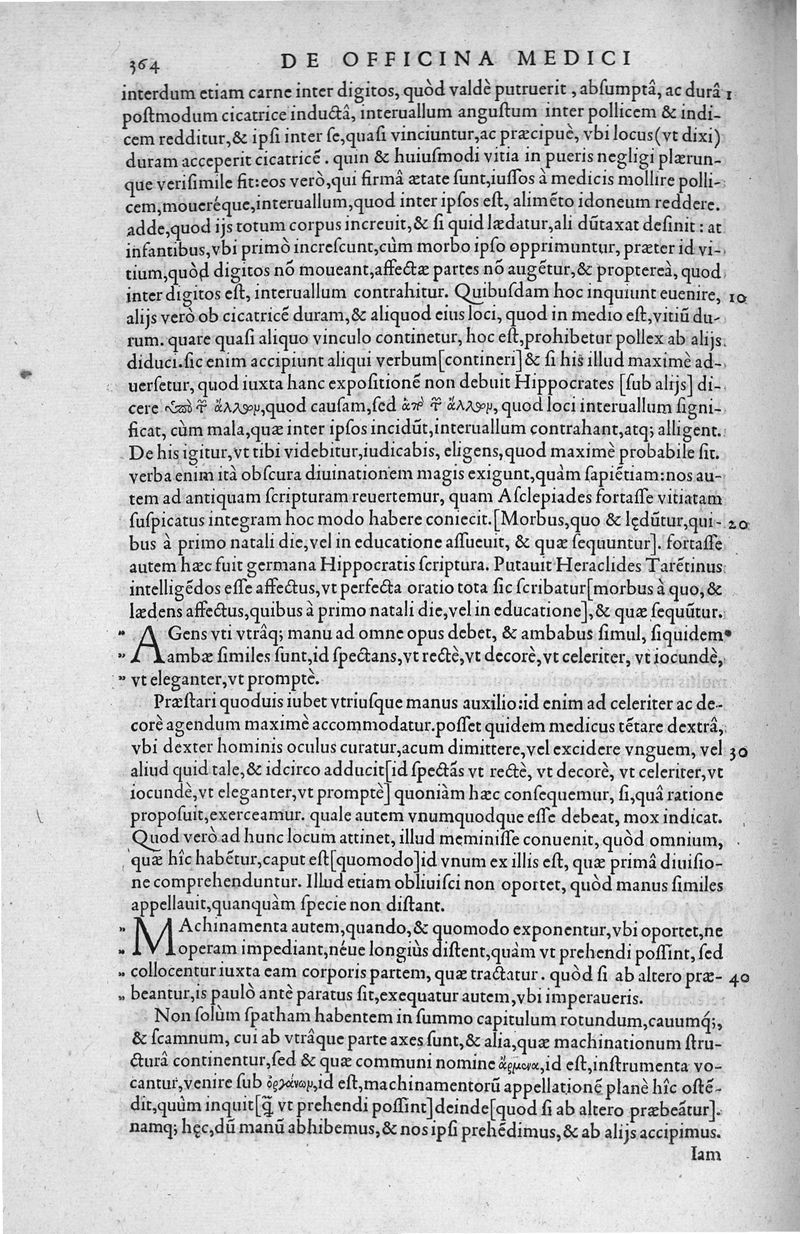 364 DE OFFICINA MEDICI
interdum etiam carne inter digitos, quòd valdè putruerit, absumptâ, ac durâ 1
postmodum cicatrice inductâ, interuallum angustum inter pollicem & indi-
cem redditur,& ipsi inter se,quasi vinciuntur,ac præcipuè, vbi locus(vt dixi)
duram acceperit cicatricē. quin & huiusmodi vitia in pueris negligi plærun-
que verisimile sit:eos verò,qui firmâ ætate sunt,iussos à medicis mollire polli-
cem,moueréque,interuallum,quod inter ipsos est, alimēto idoneum reddere.
adde,quod ijs totum corpus increuit,& si quid lædatur,ali dūtaxat desinit: at
infantibus,vbi primò increscunt,cùm morbo ipso opprimuntur, præter id vi-
tium,quòd digitos nō moueant,affectæ partes nō augētur,& proptereà, quod
inter digitos est, interuallum contrahitur. Quibusdam hoc inquiunt euenire, 10
alijs verò ob cicatricē duram,& aliquod eius loci, quod in medio est,vitiū du-
rum. quare quasi aliquo vinculo continetur, hoc est,prohibetur pollex ab alijs
diduci.sic enim accipiunt aliqui verbum[contineri]& si his illud maximè ad-
uersetur, quod iuxta hanc expositionē non debuit Hippocrates [sub alijs] di-
cere ὑπὸ τ῀ ἄλλων,quod causam,sed ἀπὸ τ῀ ἄλλων, quod loci interuallum signi-
ficat, cùm mala,quæ inter ipsos incidūt,interuallum contrahant,atq; alligent.
De his igitur,vt tibi videbitur,iudicabis, eligens,quod maximè probabile sit.
verba enim ità obscura diuinationem magis exigunt,quàm sapiētiam:nos au-
tem ad antiquam scripturam reuertemur, quam Asclepiades fortasse vitiatam
suspicatus integram hoc modo habere coniecit.[Morbus,quo & lędūtur,qui- 20
bus à primo natali die,vel in educatione assueuit, & quæ sequuntur]. fortasse
autem hæc fuit germana Hippocratis scriptura. Putauit Heraclides Tarētinus
intelligēdos esse affectus,vt perfecta oratio tota sic scribatur[morbus à quo,&
lædens affectus,quibus à primo natali die,vel in educatione],& quæ sequūtur.
" AGens vti vtrâq; manu ad omne opus debet, & ambabus simul, siquidem
" ambæ similes sunt,id spectans,vt rectè,vt decorè,vt celeriter, vt iocundè,
" vt eleganter,vt promptè.
Præstari quoduis iubet vtriusque manus auxilio:id enim ad celeriter ac de-
corè agendum maximè accommodatur.posset quidem medicus tētare dextrâ,
vbi dexter hominis oculus curatur,acum dimittere,vel excidere vnguem, vel 30
aliud quid tale,& idcirco adducit[id spectās vt rectè, vt decorè, vt celeriter,vt
iocundè,vt eleganter,vt promptè] quoniàm hæc consequemur, si,quâ ratione
proposuit,exerceamur. quale autem vnumquodque esse debeat, mox indicat.
Quod verò ad hunc locum attinet, illud meminisse conuenit, quòd omnium,
quæ hîc habētur,caput est[quomodo]id vnum ex illis est, quæ primâ diuisio-
ne comprehenduntur. Illud etiam obliuisci non oportet, quòd manus similes
appellauit,quanquàm specie non distant.
" MAchinamenta autem,quando,& quomodo exponentur,vbi oportet,ne
" operam impediant,néue longiùs distent,quàm vt prehendi possint, sed
" collocentur iuxta eam corporis partem, quæ tractatur. quòd si ab altero præ- 40
" beantur,is paulò antè paratus sit,exequatur autem,vbi imperaueris.
Non solùm spatham habentem in summo capitulum rotundum,cauumq́;,
& scamnum, cui ab vtrâque parte axes sunt,& alia,quæ machinationum stru-
cturâ continentur,sed & quæ communi nomine ἄρμενα,id est,instrumenta vo-
cantur,venire sub ὀργάνων,id est,machinamentorū appellationē planè hîc ostē-
dit,quùm inquit[q̄ vt prehendi possint]deinde[quod si ab altero præbeātur].
namq; hęc,dū manū abhibemus,& nos ipsi prehēdimus,& ab alijs accipimus.
Iam